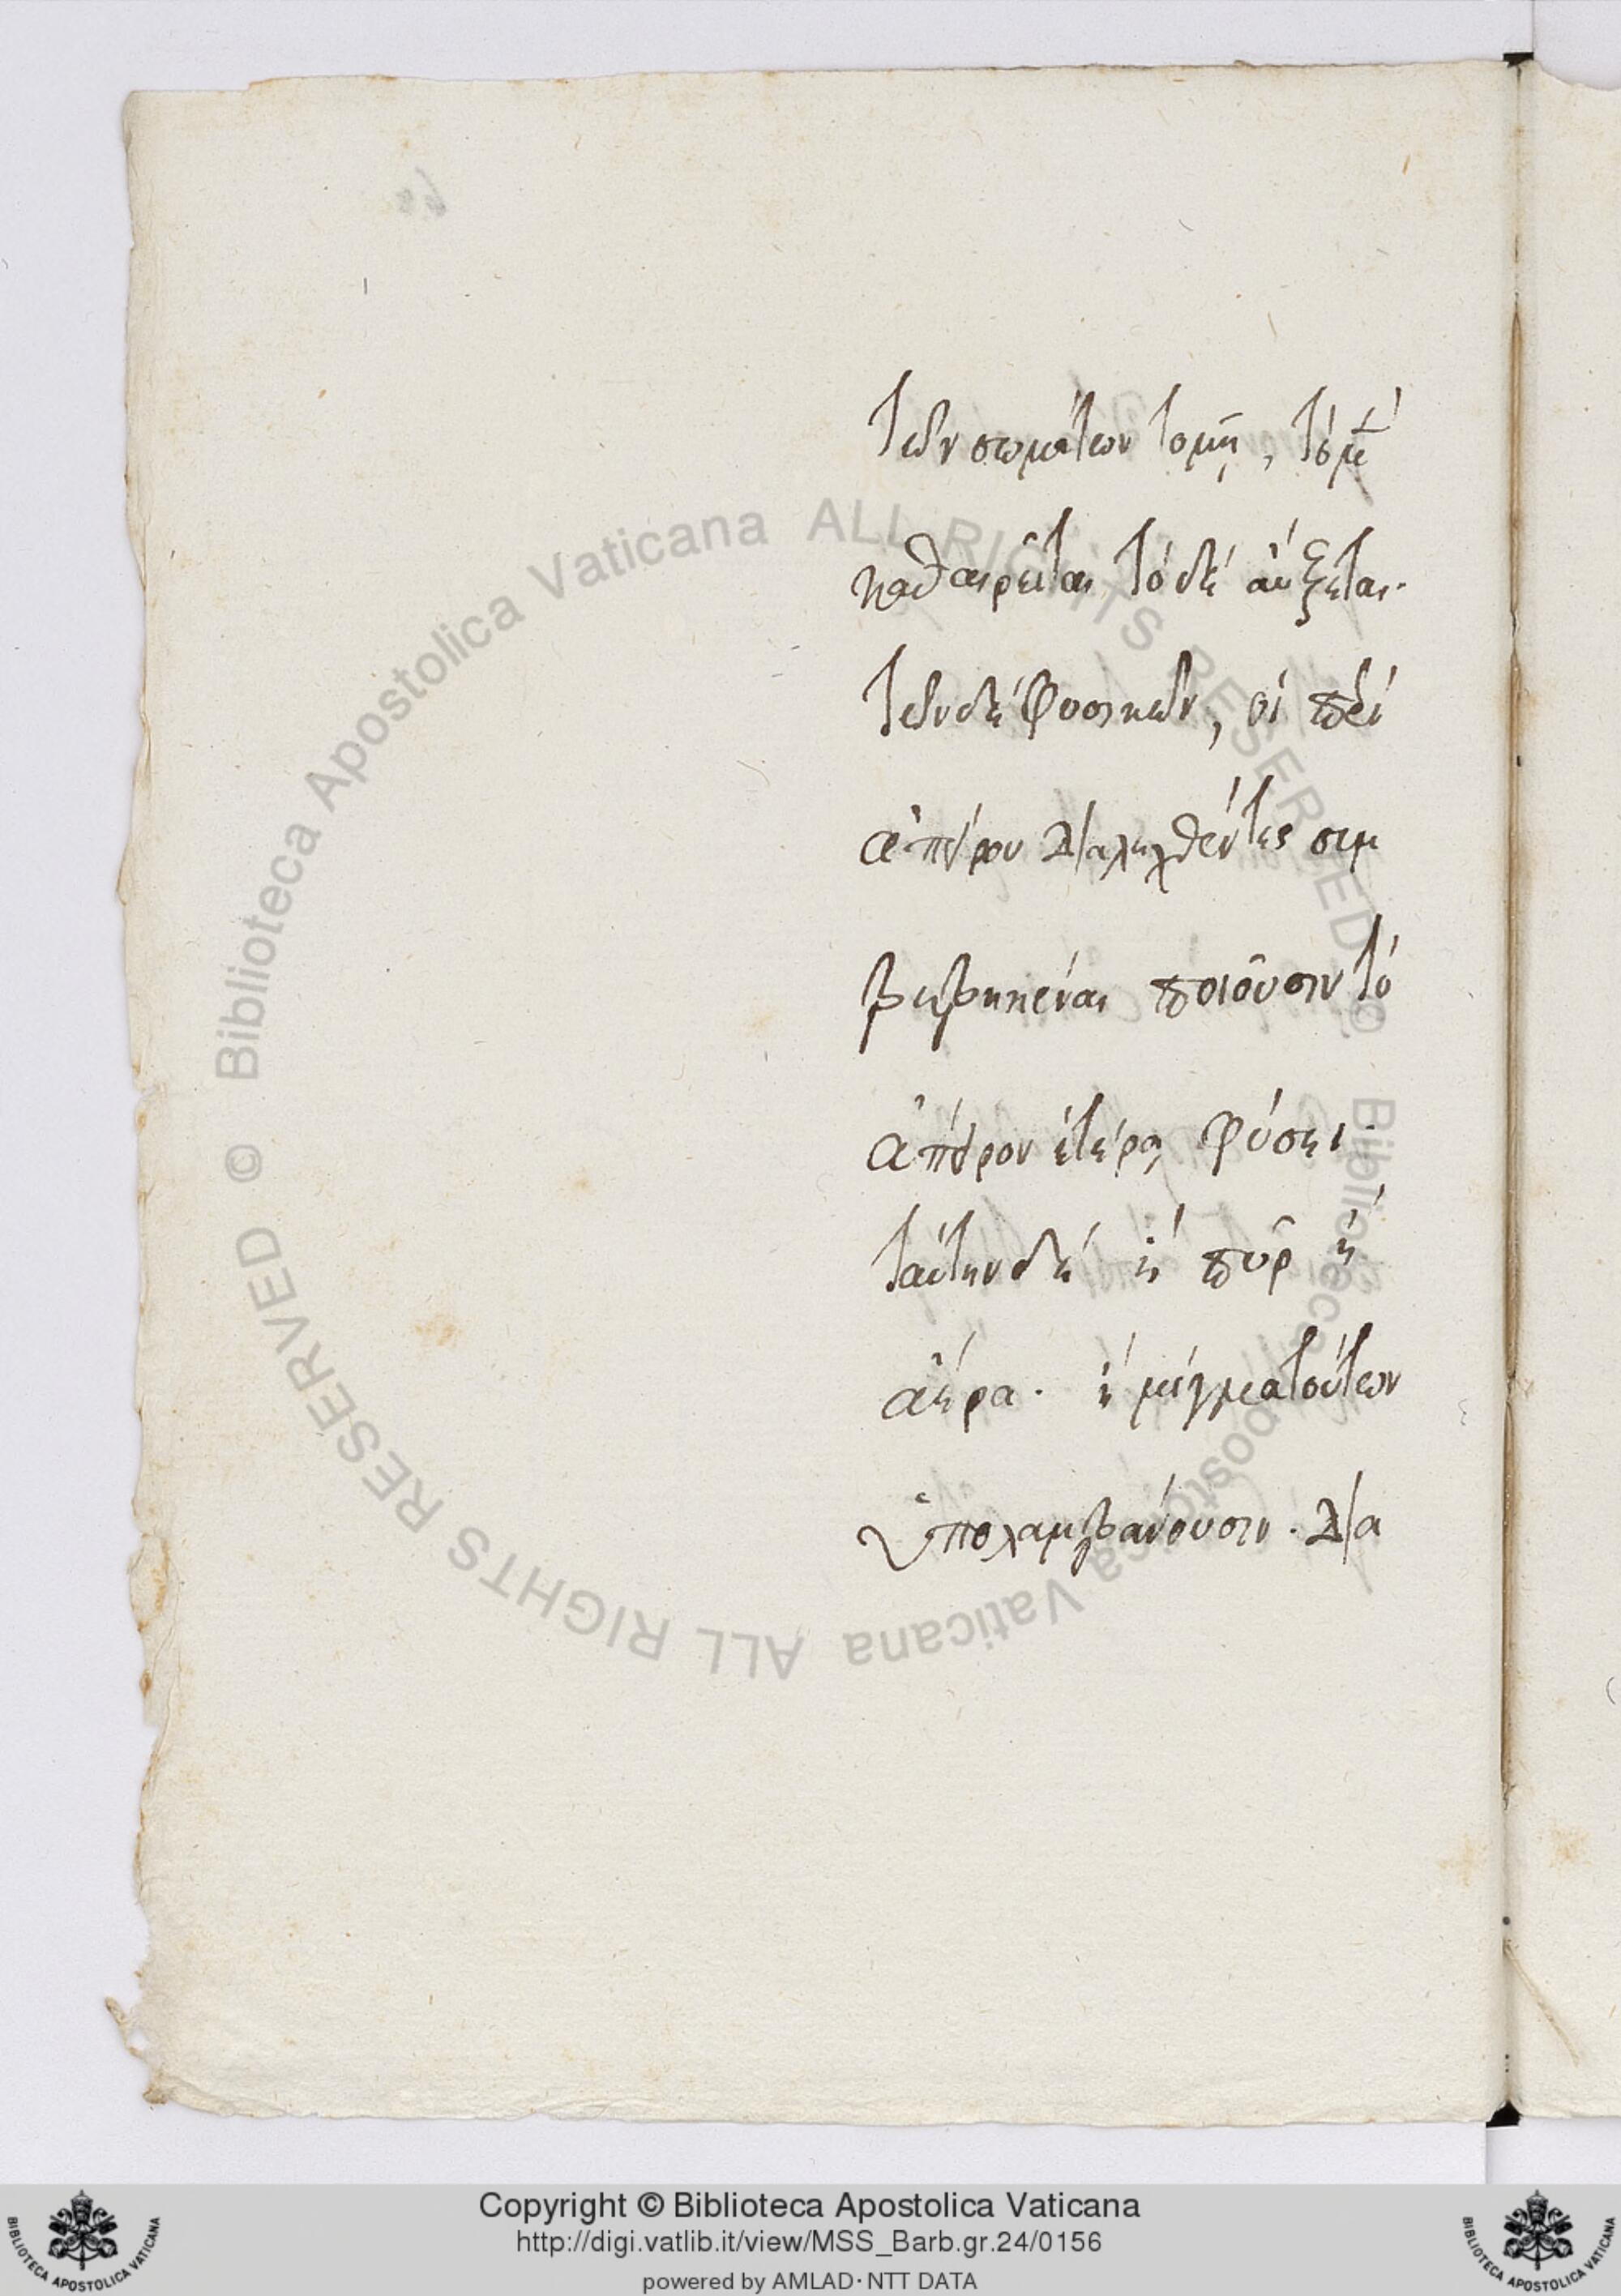 τῶν σωμάτων τομῇ, τὸ μὲν
καθαιρεῖται τὸ δὲ αὔξεται.
τῶν δὲ φυσικῶν, οἱ περὶ
ἀπείρου διαλεχθέντες συμ
βεβηκέναι ποιοῦσιν τὸ
ἄπειρον ἑτέρᾳ φύσει.
ταύτην δὲ ἢ πῦρ ἢ
ἀέρα. ἢ μίγμα τούτων
ὑπολαμβάνουσιν. δια
© Biblioteca Apostolica Vaticana ALL RIGHTS RESERVED © Biblioteca Apostolica Vaticana ALL RIGHTS RESERVED
Copyright © Biblioteca Apostolica Vaticana
http://digi.vatlib.it/view/MSS_Barb.gr.24/0156
powered by AMLAD·NTT DATA
BIBLIOTECA APOSTOLICA VATICANA
BIBLIOTECA APOSTOLICA VATICANA